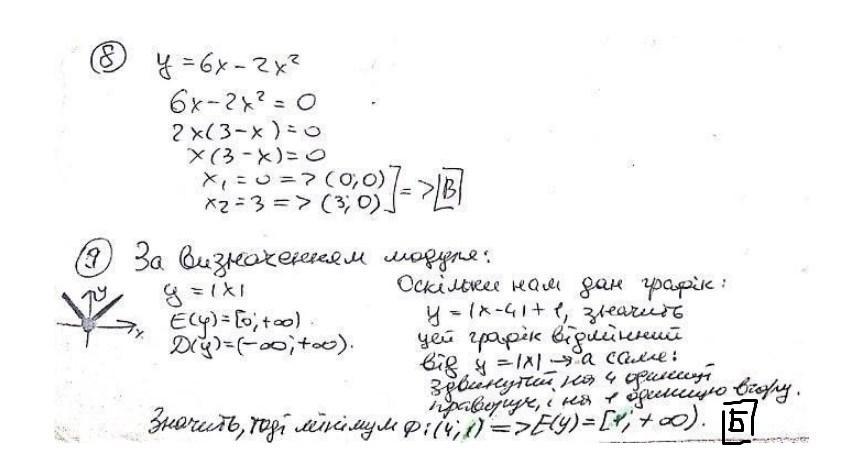 8 y = 6x - 2x²
6x - 2x² = 0
2x(3 - x) = 0
x(3 - x) = 0
x₁ = 0 => (0; 0)
x₂ = 3 => (3; 0)
] => В
9 За визначенням модуля:
y = |x|
E(y) = [0; +∞).
D(y) = (-∞; +∞).
y
x
Оскільки нам дан графік:
y = |x - 4| + 1, значить
цей графік відмінний
від y = |x| → а саме:
здвинутий на 4 одиниці
праворуч, і на 1 одиницю вгору.
Значить, тоді мінімум Ф: (4; 1) => E(y) = [1, +∞). Б